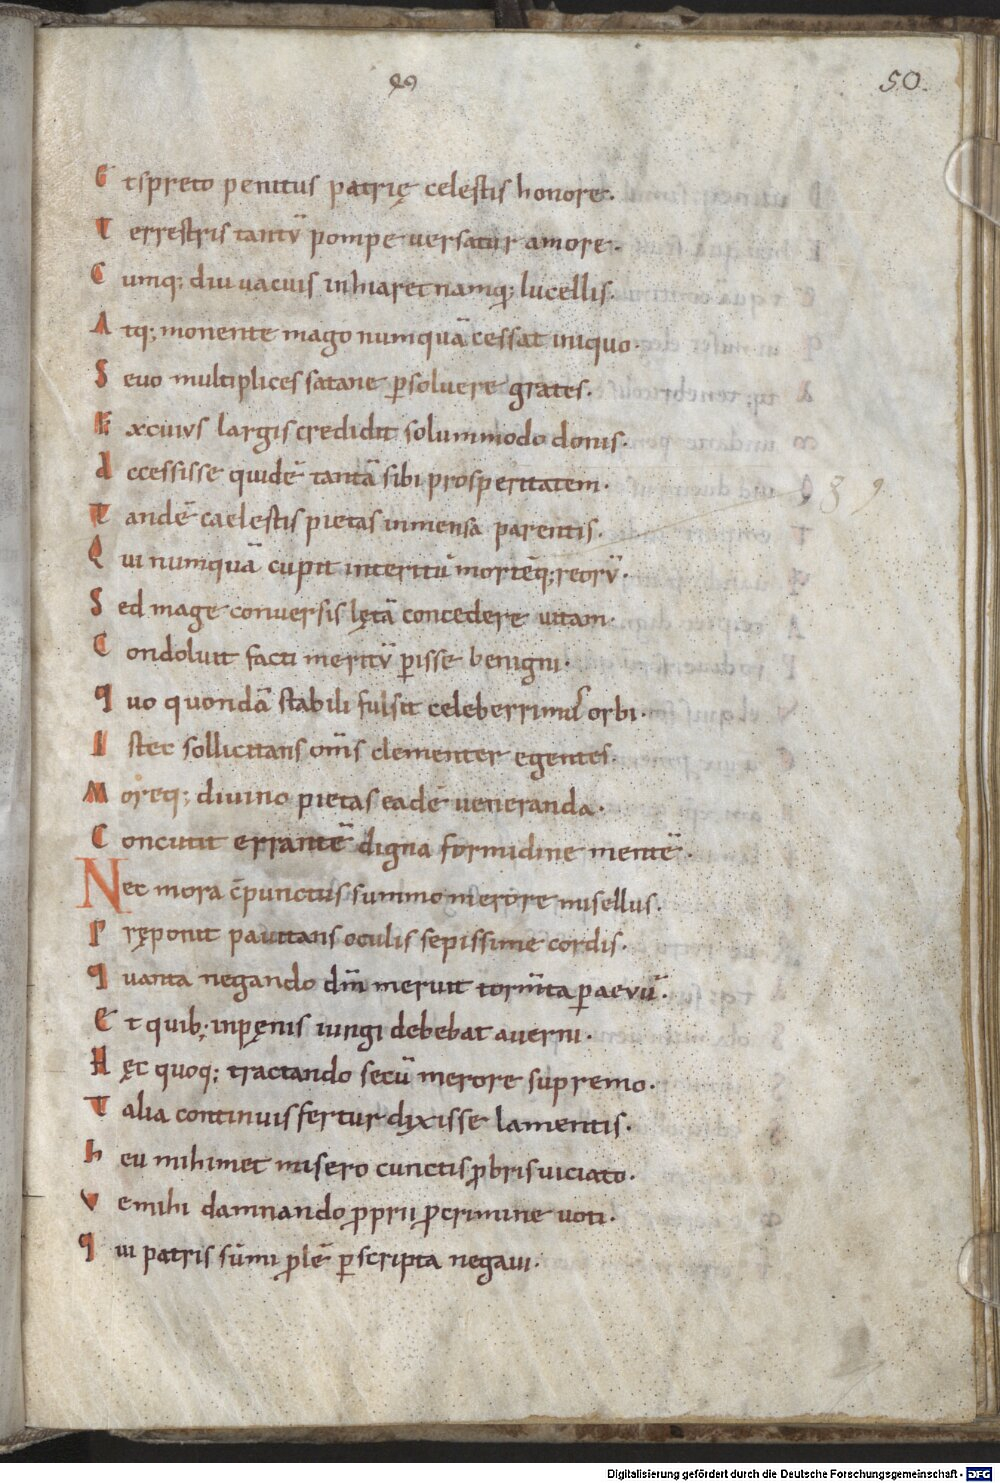 49
50.
Et spreto penitus patrię celestis honore.
Terrestris tantū pompe versatur amore.
Cumq; diu vacuis inhiaret namq; lucellis.
Atq; monente mago numquā cessat iniquo.
Sevo multiplices satane psolvere grates.
Ex cuius largis credidit solummodo donis.
Accessisse quidē tantā sibi prosperitatem.
Tandē caelestis pietas inmensa parentis.
Qui numquā cupit interitū mortēq; reorū.
Sed mage conversis lętā concedere vitam.
Condoluit facti meritū pisse benigni.
Quo quondā stabili fulsit celeberrimus orbi.
Istec sollicitans om̄s clementer egentes.
Moreq; divino pietas eadē veneranda.
Concutit errantē digna formidine mentē.
Nec mora c̄punctus summo merore misellus.
Pręponit pavitans oculis sepissime cordis.
Quanta negando dn̄m meruit torm̄ta p aevū.
Et quib; inpęnis iungi debebat averni.
Hęc quoq; tractando secū merore supremo.
Talia continuis fertur dixisse lamentis.
Heu mihimet misero cunctis pbris viciato.
Ve mihi damnando pprii p crimine voti.
Qui patris sūmi plē p scripta negavi.
Digitalisierung gefördert durch die Deutsche Forschungsgemeinschaft - DFG